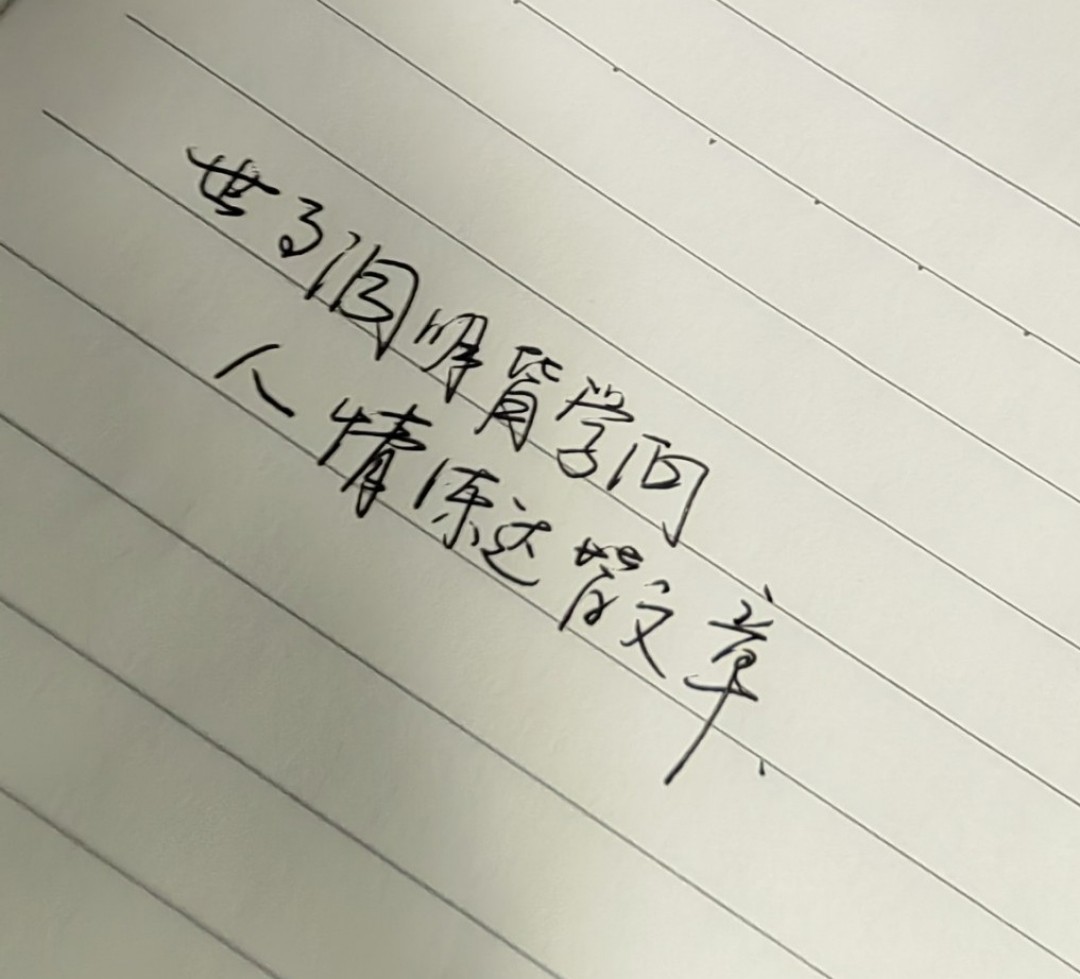 世事洞明皆学问
人情练达皆文章